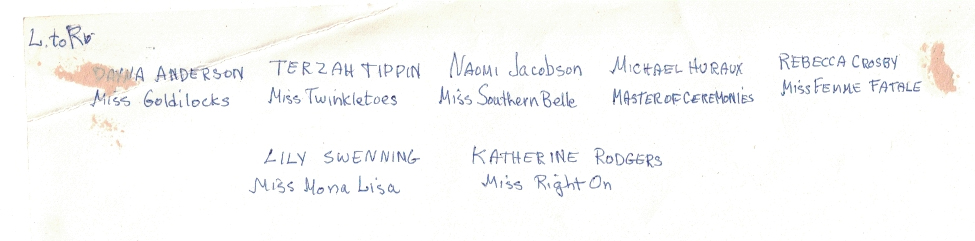 L. to R.
DAYNA ANDERSON TERZAH TIPPIN NAOMI Jacobson MICHAEL HURAUX REBECCA CROSBY
Miss Goldilocks Miss Twinkletoes Miss Southern Belle MASTER OF CEREMONIES Miss FEMME FATALE
LILY SWENNING KATHERINE RODGERS
Miss Mona Lisa Miss Right On